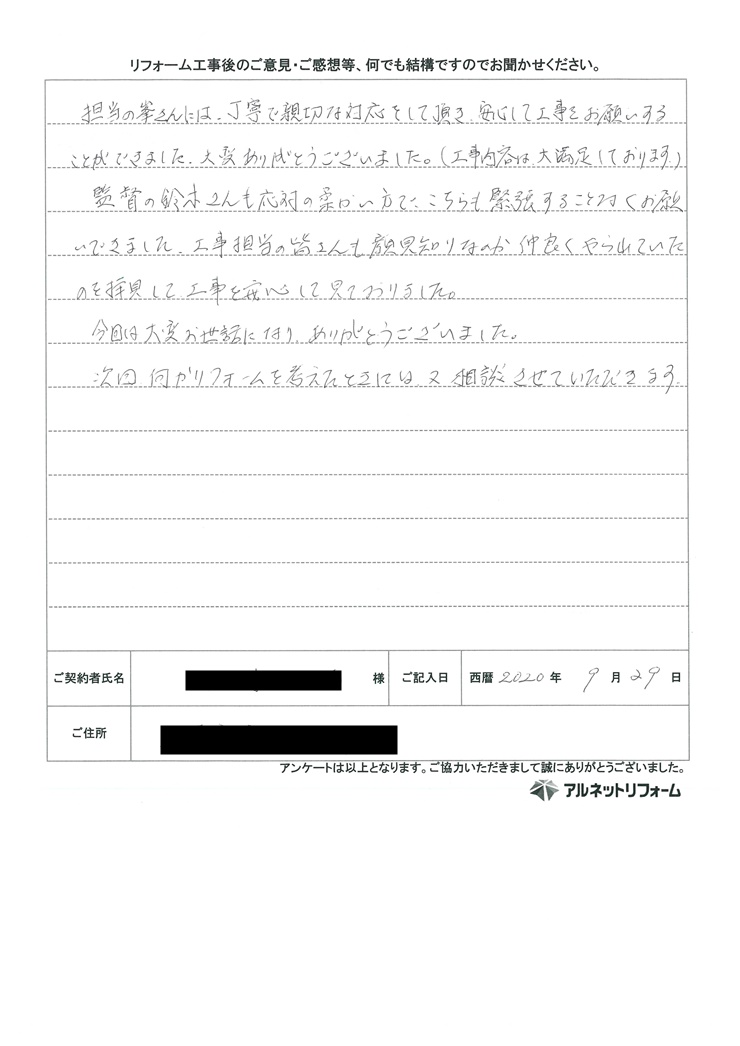 リフォーム工事後のご意見・ご感想等、何でも結構ですのでお聞かせください。
担当の峯さんには、丁寧で親切な対応をして頂き、安心して工事をお願いする
ことができました。大変ありがとうございました。(工事内容は大満足しております)
監督の鈴木さんも応対の柔かい方で、こちらも緊張すること无くお願
いできました。工事担当の皆さんも顔見知りなのか仲良くやられていた
のを拝見して工事を安心して見ておりました。
今回は大変お世話になり、ありがとうございました。
次回何かリフォームを考えたときには又相談させていただきます。
ご契約者氏名 様 ご記入日 西暦 2020 年 9 月 29 日
ご住所
アンケートは以上となります。ご協力いただきまして誠にありがとうございました。
アルネットリフォーム